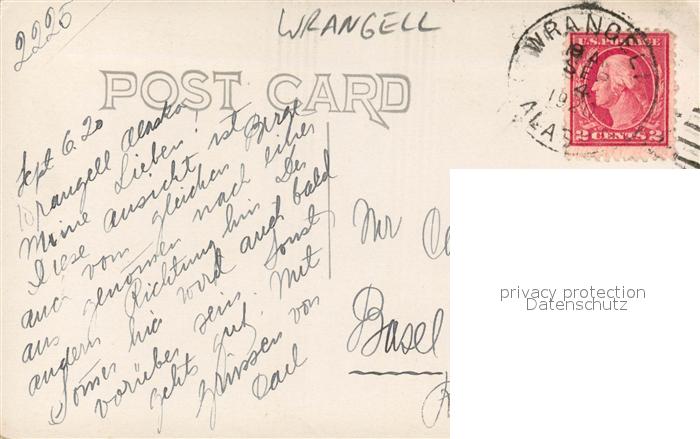 2225
WRANGELL
POST CARD
WRANGELL
SEP
4
192
ALAS
U.S. POSTAGE
2 CENTS 2
Sept 6. 20
Wrangell Alaska
Meine Lieben!
Diese ansicht ist
auch vom gleichen Berge
aus genommen nach einer
andern Richtung hin. Der
Somer hier wird auch bald
vorüber sein. Sonst
gehts gut. Mit
Grüssen von
Mr
Basel
privacy protection
Datenschutz